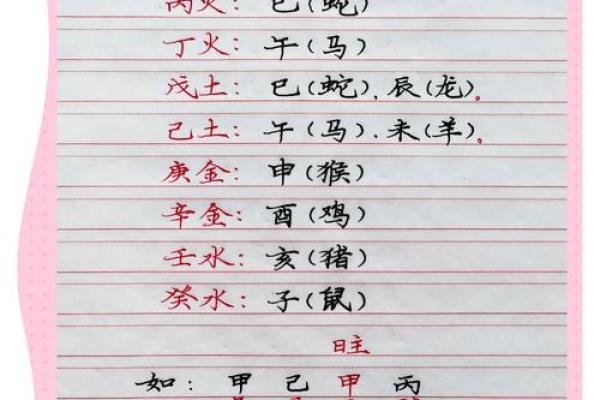 丙火：巳（蛇）
丁火：午（马）
戊土：巳（蛇）、辰（龙）。
己土：午（马）、未（羊）。
庚金：申（猴）
辛金：酉（鸡）
壬水：亥（猪）
癸水：子（鼠）
旺
如：甲 己 甲 丙